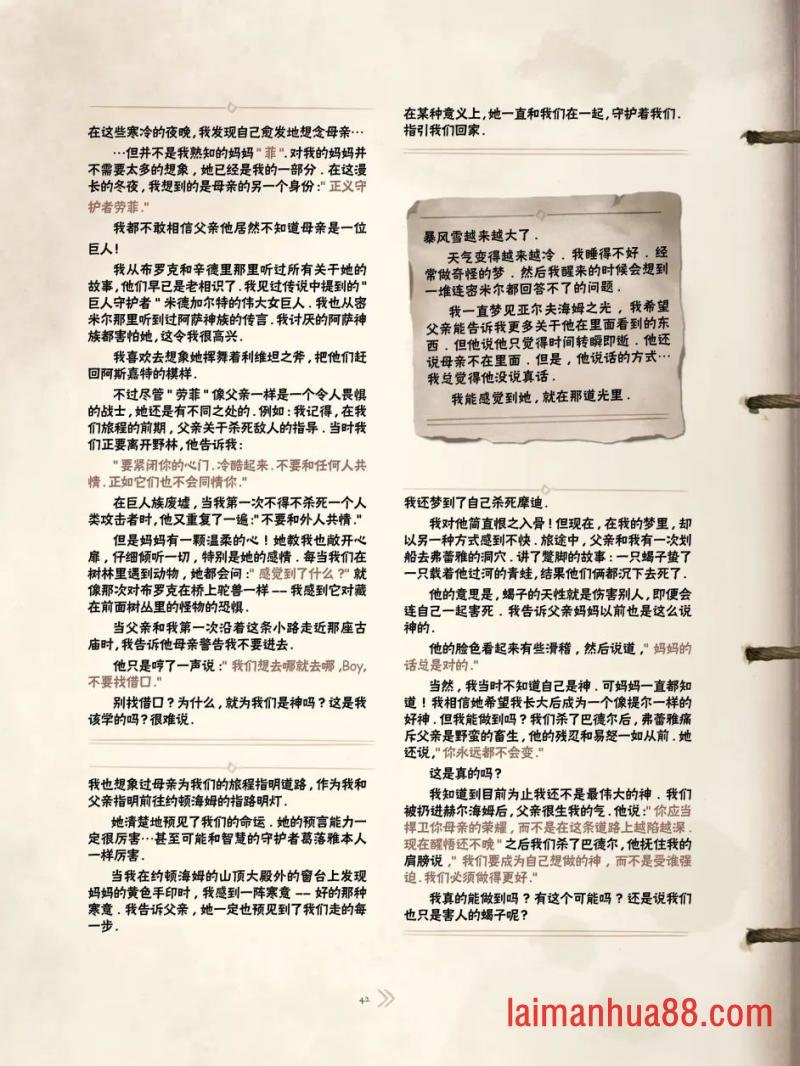 在这些寒冷的夜晚,我发现自己愈发地想念母亲…
…但并不是我熟知的妈妈"菲".对我的妈妈并
不需要太多的想象,她已经是我的一部分.在这漫
长的冬夜,我想到的是母亲的另一个身份:"正义守
护者劳菲."
我都不敢相信父亲他居然不知道母亲是一位
巨人!
我从布罗克和辛德里那里听过所有关于她的
故事,他们早已是老相识了.我见过传说中提到的"
巨人守护者"米德加尔特的伟大女巨人.我也从密
米尔那里听到过阿萨神族的传言.我讨厌的阿萨神
族都害怕她,这令我很高兴.
我喜欢去想象她挥舞着利维坦之斧,把他们赶
回阿斯嘉特的模样.
不过尽管"劳菲"像父亲一样是一个令人畏惧
的战士,她还是有不同之处的.例如:我记得,在我
们旅程的前期,父亲关于杀死敌人的指导.当时我
们正要离开野林,他告诉我:
"要紧闭你的心门.冷酷起来.不要和任何人共
情.正如它们也不会同情你."
在巨人族废墟,当我第一次不得不杀死一个人
类攻击者时,他又重复了一遍:"不要和外人共情."
但是妈妈有一颗温柔的心!她教我也敞开心
扉,仔细倾听一切,特别是她的感情.每当我们在
树林里遇到动物,她都会问:"感觉到了什么?"就
像那次对布罗克在桥上驼兽一样--我感到它对藏
在前面树丛里的怪物的恐惧.
当父亲和我第一次沿着这条小路走近那座古
庙时,我告诉他母亲警告我不要进去.
他只是哼了一声说:"我们想去哪就去哪,Boy,
不要找借口."
别找借口?为什么,就为我们是神吗?这是我
该学的吗?很难说.
我也想象过母亲为我们的旅程指明道路,作为我和
父亲指明前往约顿海姆的指路明灯.
她清楚地预见了我们的命运.她的预言能力一
定很厉害…甚至可能和智慧的守护者葛落雅本人
一样厉害.
当我在约顿海姆的山顶大殿外的窗台上发现
妈妈的黄色手印时,我感到一阵寒意--好的那种
寒意.我告诉父亲,她一定也预见到了我们走的每
一步.
在某种意义上,她一直和我们在一起,守护着我们.
指引我们回家.
暴风雪越来越大了.
天气变得越来越冷.我睡得不好.经
常做奇怪的梦.然后我醒来的时候会想到
一堆连密米尔都回答不了的问题.
我一直梦见亚尔夫海姆之光,我希望
父亲能告诉我更多关于他在里面看到的东
西.但他说他只觉得时间转瞬即逝.他还
说母亲不在里面.但是,他说话的方式…
我总觉得他没说真话.
我能感觉到她,就在那道光里.
我还梦到了自己杀死摩迪.
我对他简直恨之入骨!但现在,在我的梦里,却
以另一种方式感到不快.旅途中,父亲和我有一次划
船去弗蕾雅的洞穴.讲了蹩脚的故事:一只蝎子蛰了
一只载着他过河的青蛙,结果他们俩都沉下去死了.
他的意思是,蝎子的天性就是伤害别人,即便会
连自己一起害死.我告诉父亲妈妈以前也是这么说
神的.
他的脸色看起来有些滑稽,然后说道,"妈妈的
话总是对的."
当然,我当时不知道自己是神.可妈妈一直都知
道!我相信她希望我长大后成为一个像提尔一样的
好神.但我能做到吗?我们杀了巴德尔后,弗蕾雅痛
斥父亲是野蛮的畜生,他的残忍和易怒一如从前.她
还说,"你永远都不会变."
这是真的吗?
我知道到目前为止我还不是最伟大的神.我们
被扔进赫尔海姆后,父亲很生我的气.他说:"你应当
捍卫你母亲的荣耀,而不是在这条道路上越陷越深.
现在醒悟还不晚"之后我们杀了巴德尔,他抚住我的
肩膀说,"我们要成为自己想做的神,而不是受谁强
迫.我们必须做得更好."
我真的能做到吗?有这个可能吗?还是说我们
也只是害人的蝎子呢?
42
laimanhua88.com